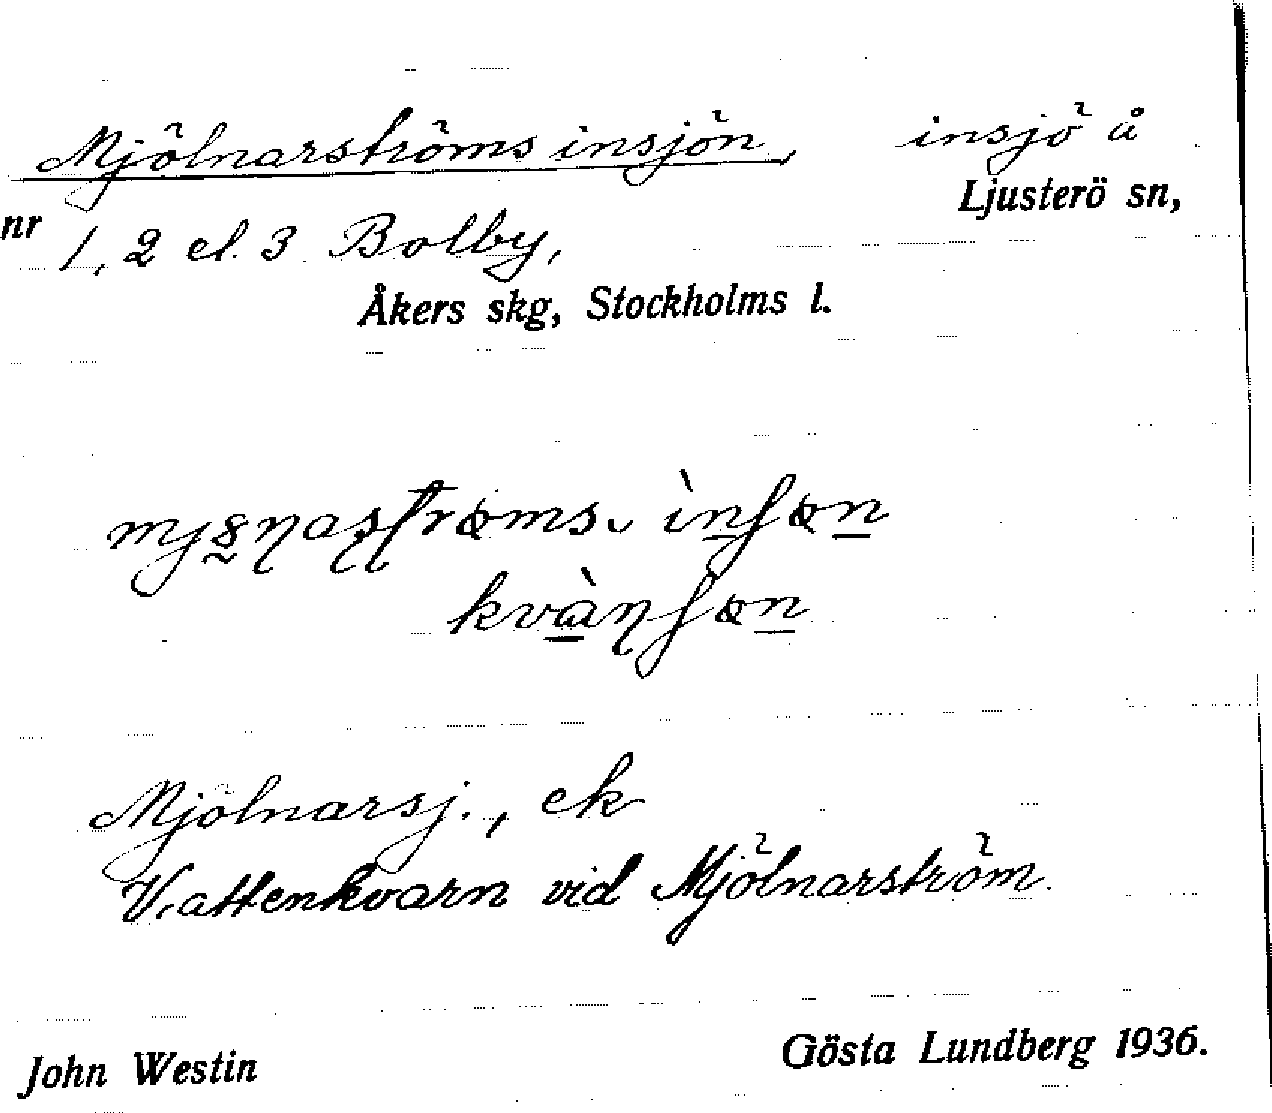 Mjölnarströms insjön, insjö å
Ljusterö sn,
nr 1, 2 el. 3 Bolby,
Åkers skg, Stockholms l.
Mjölnarsj., ek
Vattenkvarn vid Mjölnarström.
John Westin
Gösta Lundberg 1936.